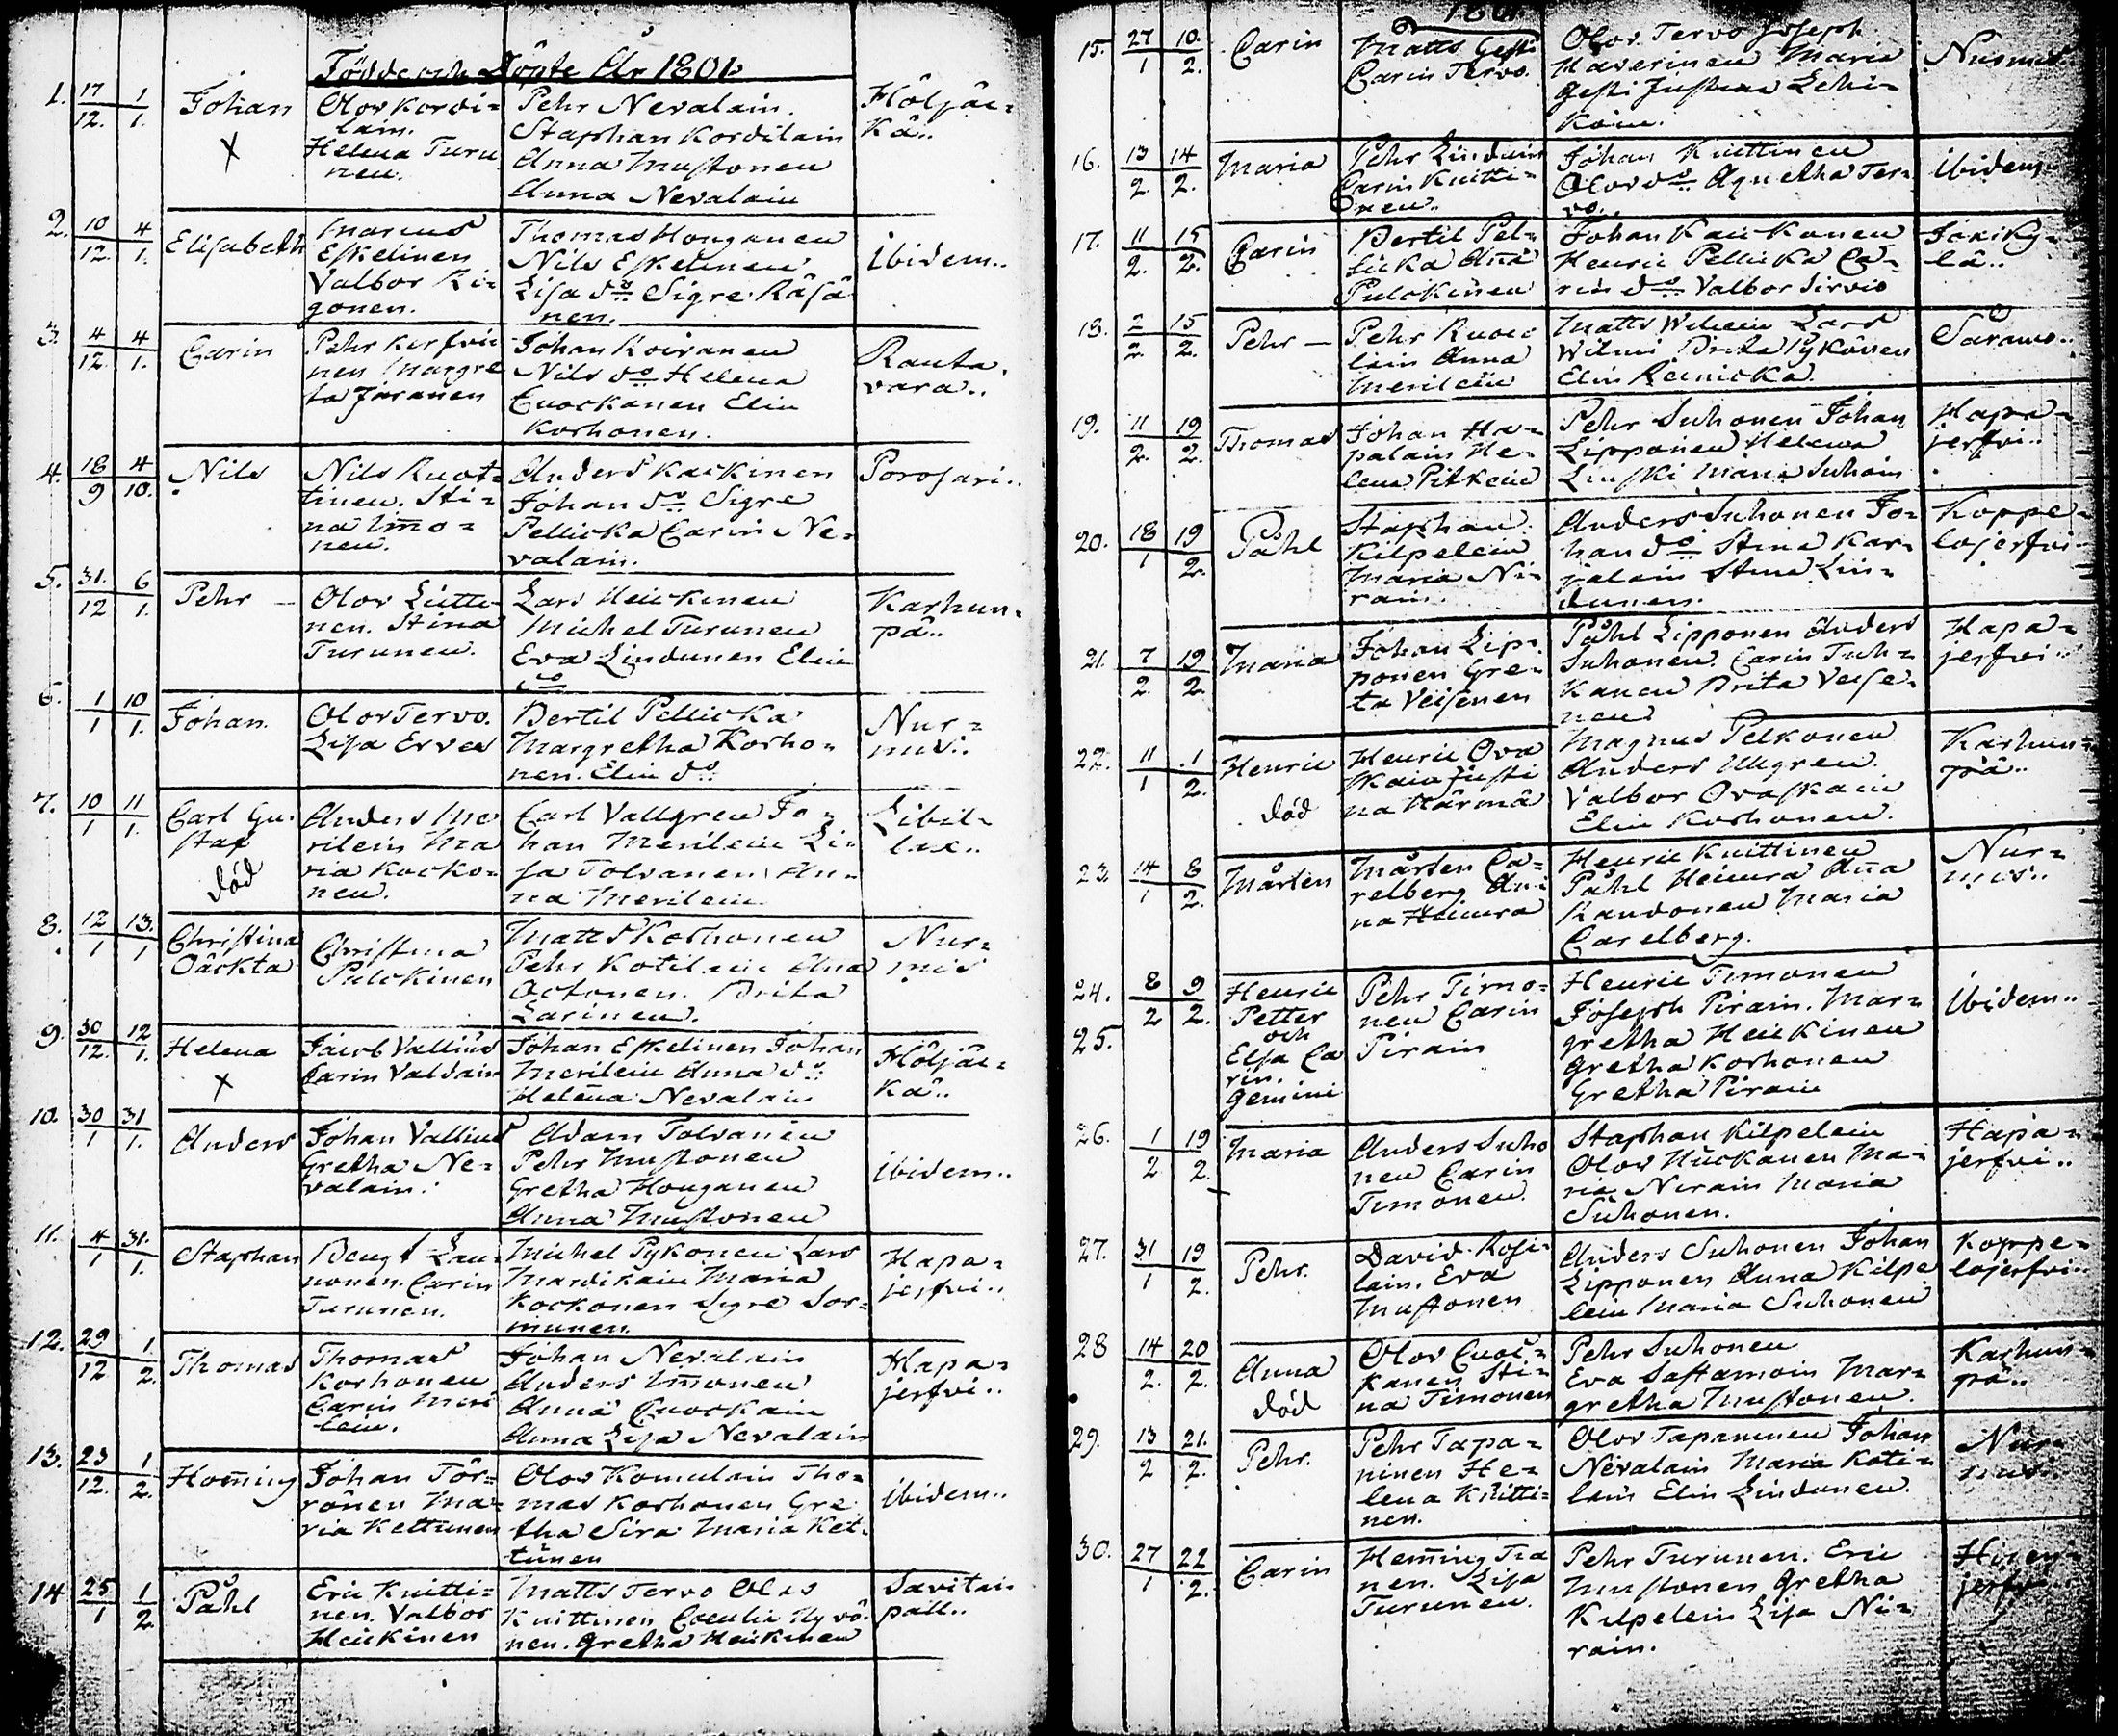 Födde och Döpte År 1801.
1. 17/12. 1/1. Johan X
Olov Kordi-
lain.
Helena Turu
nen.
Pehr Nevalain.
Staphan Kordilain
Anna Mustonen
Anna Nevalain
Höljäc=
kä..
2. 10/12. 4/1. Elisabeth
Marcus
Eskelinen
Valbor Ri-
gonen.
Thomas Honganen
Nils Eskelinen
Lisa do Sigre Räsä
nen.
ibidem..
3. 4/12. 4/1. Carin
Pehr Kerfvi
nen Margre
ta Jäxänen
Johan Koivanen
Nils do Helena
Cuockanen Elin
Korhonen.
Rauta.
vara..
4. 18/9 4/10. Nils
Nils Ruot=
tinen. Sti=
na Im̄o=
nen.
Anders Kackinen
Johan do Sigre
Pellicka Carin Ne=
valain.
Porosari..
5. 31./12 6/1. Pehr —
Olov Lutti-
nen. Stina
Turunen.
Lars Heickinen
Michel Turunen
Eva Lindunen Elin
do
Karhun=
pä..
6. 1/1 10/1. Johan.
Olov Tervo.
Lisa Erves
Bertil Pellicka
Margretha Korho-
nen. Elin do
Nur=
mis..
7. 10/1 11/1. Carl Gu-
staf
död
Anders Me
rilein Ma
ria Kocko-
nen.
Carl Vallgren Jo-
han Merilein Li-
sa Tolvanen An-
na Merilein.
Libel-
lax..
8. 12/1 13./1 Christina
Oäckta
Christina
Pulckinen
Matts Korhonen
Pehr Kotilain Anna
Octonen. Brita
Larinen.
Nur=
mis
9. 30/12. 12/1. Helena
X
Jacob Vallius
Carin Valdain
Johan Eskelinen Johan
Merilein Anna do
Helena Nevalain
Höljäc-
kä..
10. 30/1 31/1. Anders
Johan Vallius
Gretha Ne=
valain.
Adam Tolvanen
Pehr Mustonen
Gretha Honganen
Anna Mustonen
ibidem..
11. 4/1 31./1. Staphan
Bengt Lau-
nonen. Carin
Turunen.
Michel Pykonen Lars
Mardikain Maria
Kockonen Sigre Sor-
munen.
Hapa=
jerfvi..
12. 29/12 1./2. Thomas
Thomas
Korhonen
Carin Meri
lein.
Johan Nevalain
Anders Im̄onen
Anna Cuockain
Anna Lisa Nevalain
Hapa=
jerfvi..
13. 23/12. 1/2. Hem̄ing
Johan Tör=
rönen Ma=
ria Kettunen
Olov Komulain Tho=
mas Korhonen Gre
tha Sira Maria Ket-
tunen
ibidem..
14 25/1 1/2. Påhl
Eric Knitti=
nen. Valbor
Heickinen
Matts Tervo Olos
Knittinen Coecilia Hyvö
nen. Gretha Heickinen
Savitai-
pall..
1801.
15. 27/1 10./2. Carin
Matts Gesti
Carin Tervo.
Olov Tervo Joseph
Haverinen Maria
Gesti Justina Lehi-
koin.
Nurmis
16. 13/2. 14/2. Maria
Pehr Lindunn
Carin Knitti-
nen.
Johan Knittinen
Olov do Agnetha Ter-
vo.
ibidem.
17. 11/2. 15/2. Carin
Bertil Pel=
licka An̄a
Pulckinen
Johan Kauckonen
Henric Pellicka Ca-
rin do Valbor Sirvio
Jouiky-
lä..
18. 2/2. 15/2. Pehr —
Pehr Ruoco
lain Anna
Merilein
Matts Wilmin Lars
Wilmi Brita Pykönen
Elin Reinicka.
Saramo..
19. 11/2. 19/2. Thomas
Johan Ha=
palain He=
lena Pitkein
Pehr Suhonen Johan
Lipponen Helena
Linski Maria Suhoin
Hapa=
jerfvi..
20. 18/1 19/2. Påhl
Staphan
Kilpelein
Maria Ni-
rain.
Anders Suhonen Jo-
han do Stina Kar-
jalain Stina Lin-
dunen.
Koppe-
lojerfvi..
21. 7/2. 19/2. Maria
Johan Lip-
ponen Gre-
ta Veisenen
Påhl Lipponen Anders
Suhonen. Carin Tuh=
kanen Brita Veise-
nen
Hapa=
jerfvi..
22. 11/1 1/2. Henric
död
Henric Ova
skain Justi
na Härmä
Magnus Pelkonen
Anders Ullgren.
Valbor Ovaskain
Elin Korhonen.
Karhun=
pä..
23. 14/1 8/2. Mårten
Mårten Ca=
relberg An-
na Heinura
Henric Knittinen
Påhl Heinura An̄a
Randonen Maria
Carelberg.
Nur=
mis..
24. 8/2 9/2. Henric
Petter
och
25. Elsa Ca
rin.
Gemini
Pehr Timo=
nen Carin
Pirain
Henric Timonen
Joseph Pirain. Mar=
gretha Heickinen
Gretha Korhonen
Gretha Pirain
ibidem..
26. 1/2 19/2. Maria
Anders Suho
nen Carin
Timonen.
Staphan Kilpelein
Olov Huckanen Ma-
ria Nirain Maria
Suhonen.
Hapa-
jerfvi..
27. 31/1 19/2. Pehr.
David Rosi-
lain. Eva
Mustonen
Anders Suhonen Johan
Lipponen Anna Kilpe
lein Maria Suhonen
Koppe=
lojerfvi..
28 14/2. 20/2. Anna
död
Olov Cuoc=
kanen Sti=
na Timonen
Pehr Suhonen
Eva Sastamoin Mar=
gretha Mustonen.
Karhun=
pä..
29. 13/2 21./2. Pehr.
Pehr Tapa=
ninen He-
lena Knitti=
nen.
Olov Tapaninen Johan
Nevalain Maria Koti-
lain Elin Lindunen.
Nur-
mis
30. 27/1 22/2. Carin
Hem̄ing Tra
nen. Lisa
Turunen.
Pehr Turunen. Eric
Mustonen Gretha
Kilpelein Lisa Ni=
rain.
jerfvi